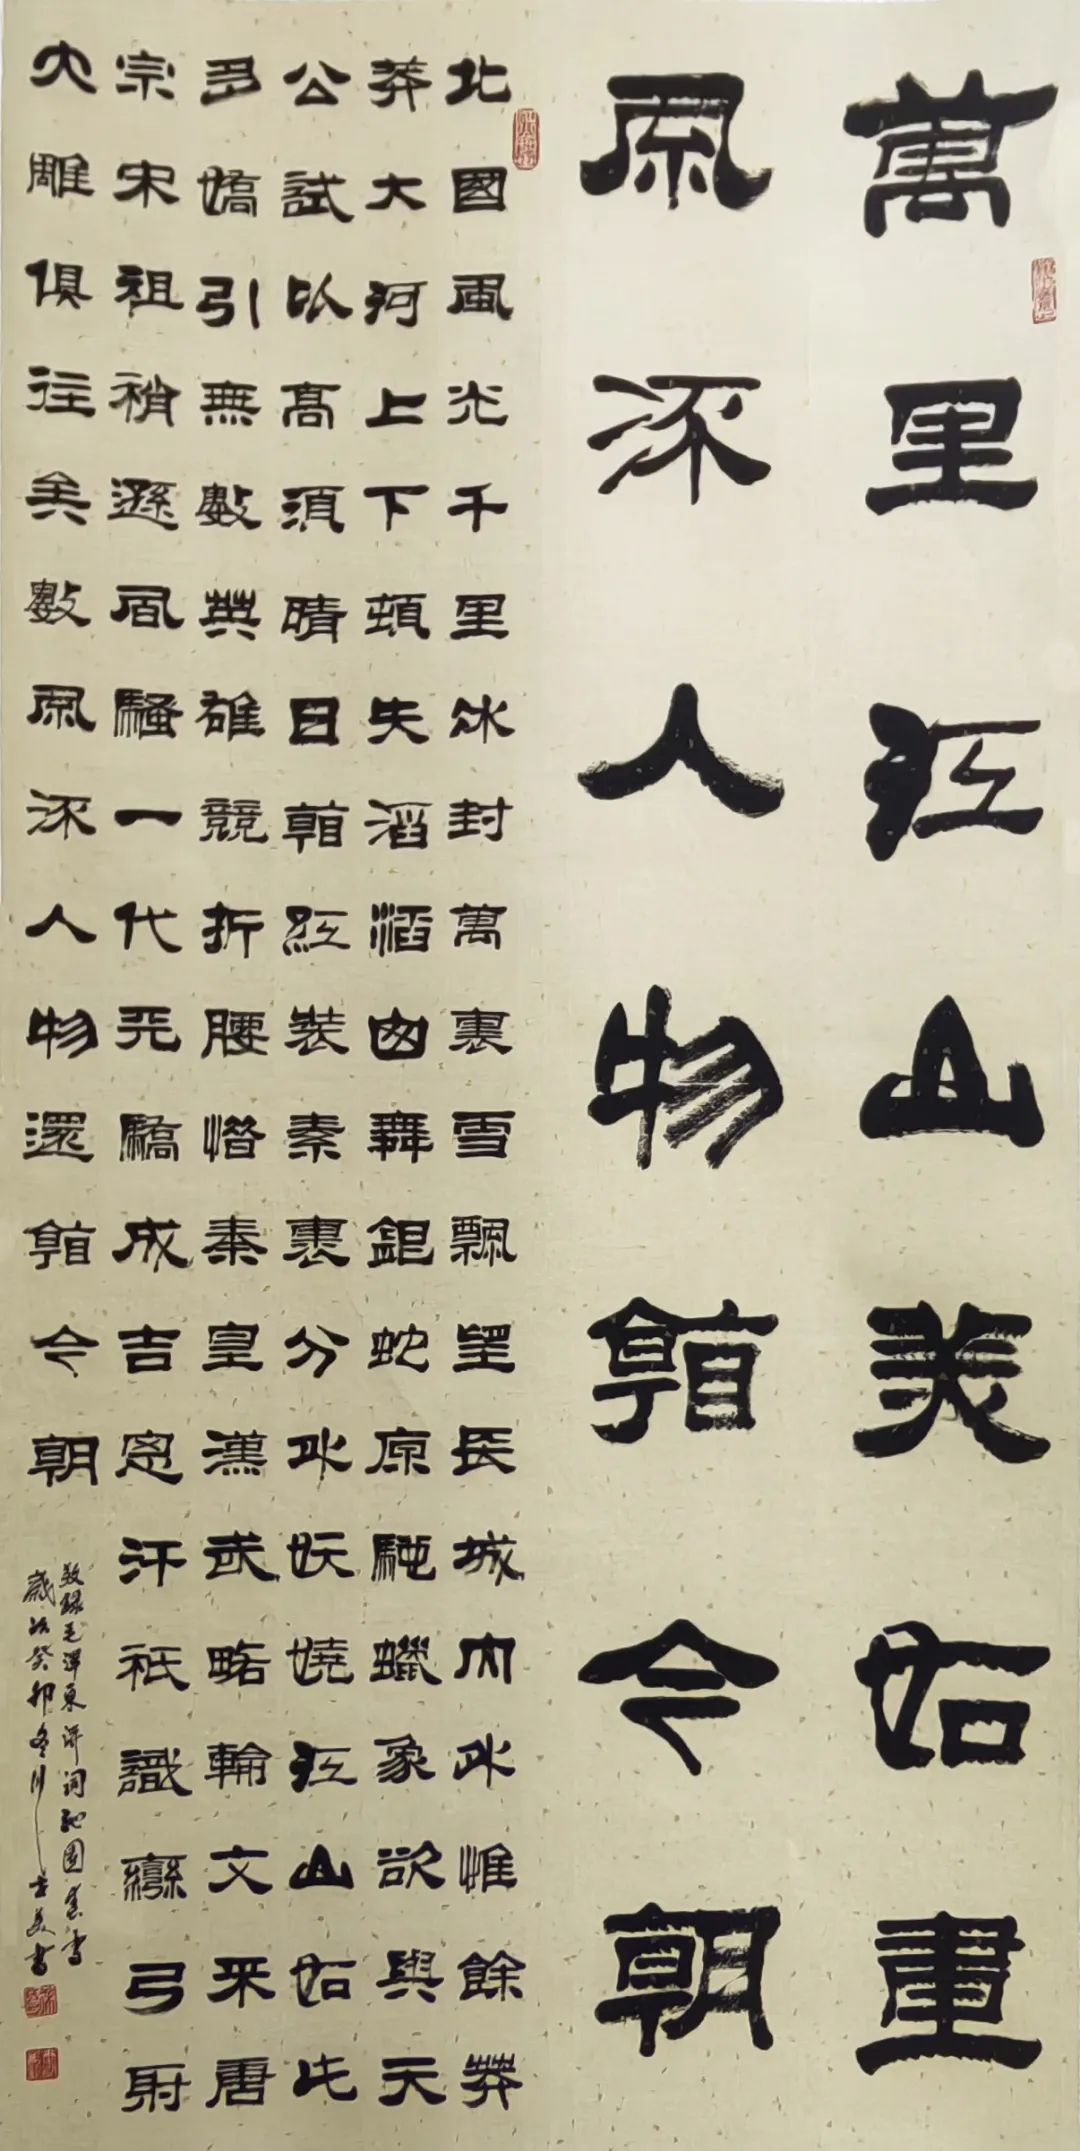 萬里江山美如畫
風流人物看今朝
北國風光千里冰封萬裏雪飄望長城內外惟餘莽
莽大河上下頓失滔滔山舞銀蛇原馳蠟象欲與天
公試比高須晴日看紅裝素裹分外妖嬈江山如此
多嬌引無數英雄競折腰惜秦皇漢武略輸文采唐
宗宋祖稍遜風騷一代天驕成吉思汗祇識彎弓射
大雕俱往矣數風流人物還看今朝
敬錄毛澤東詩詞沁園春雪
歲次癸卯冬月美書